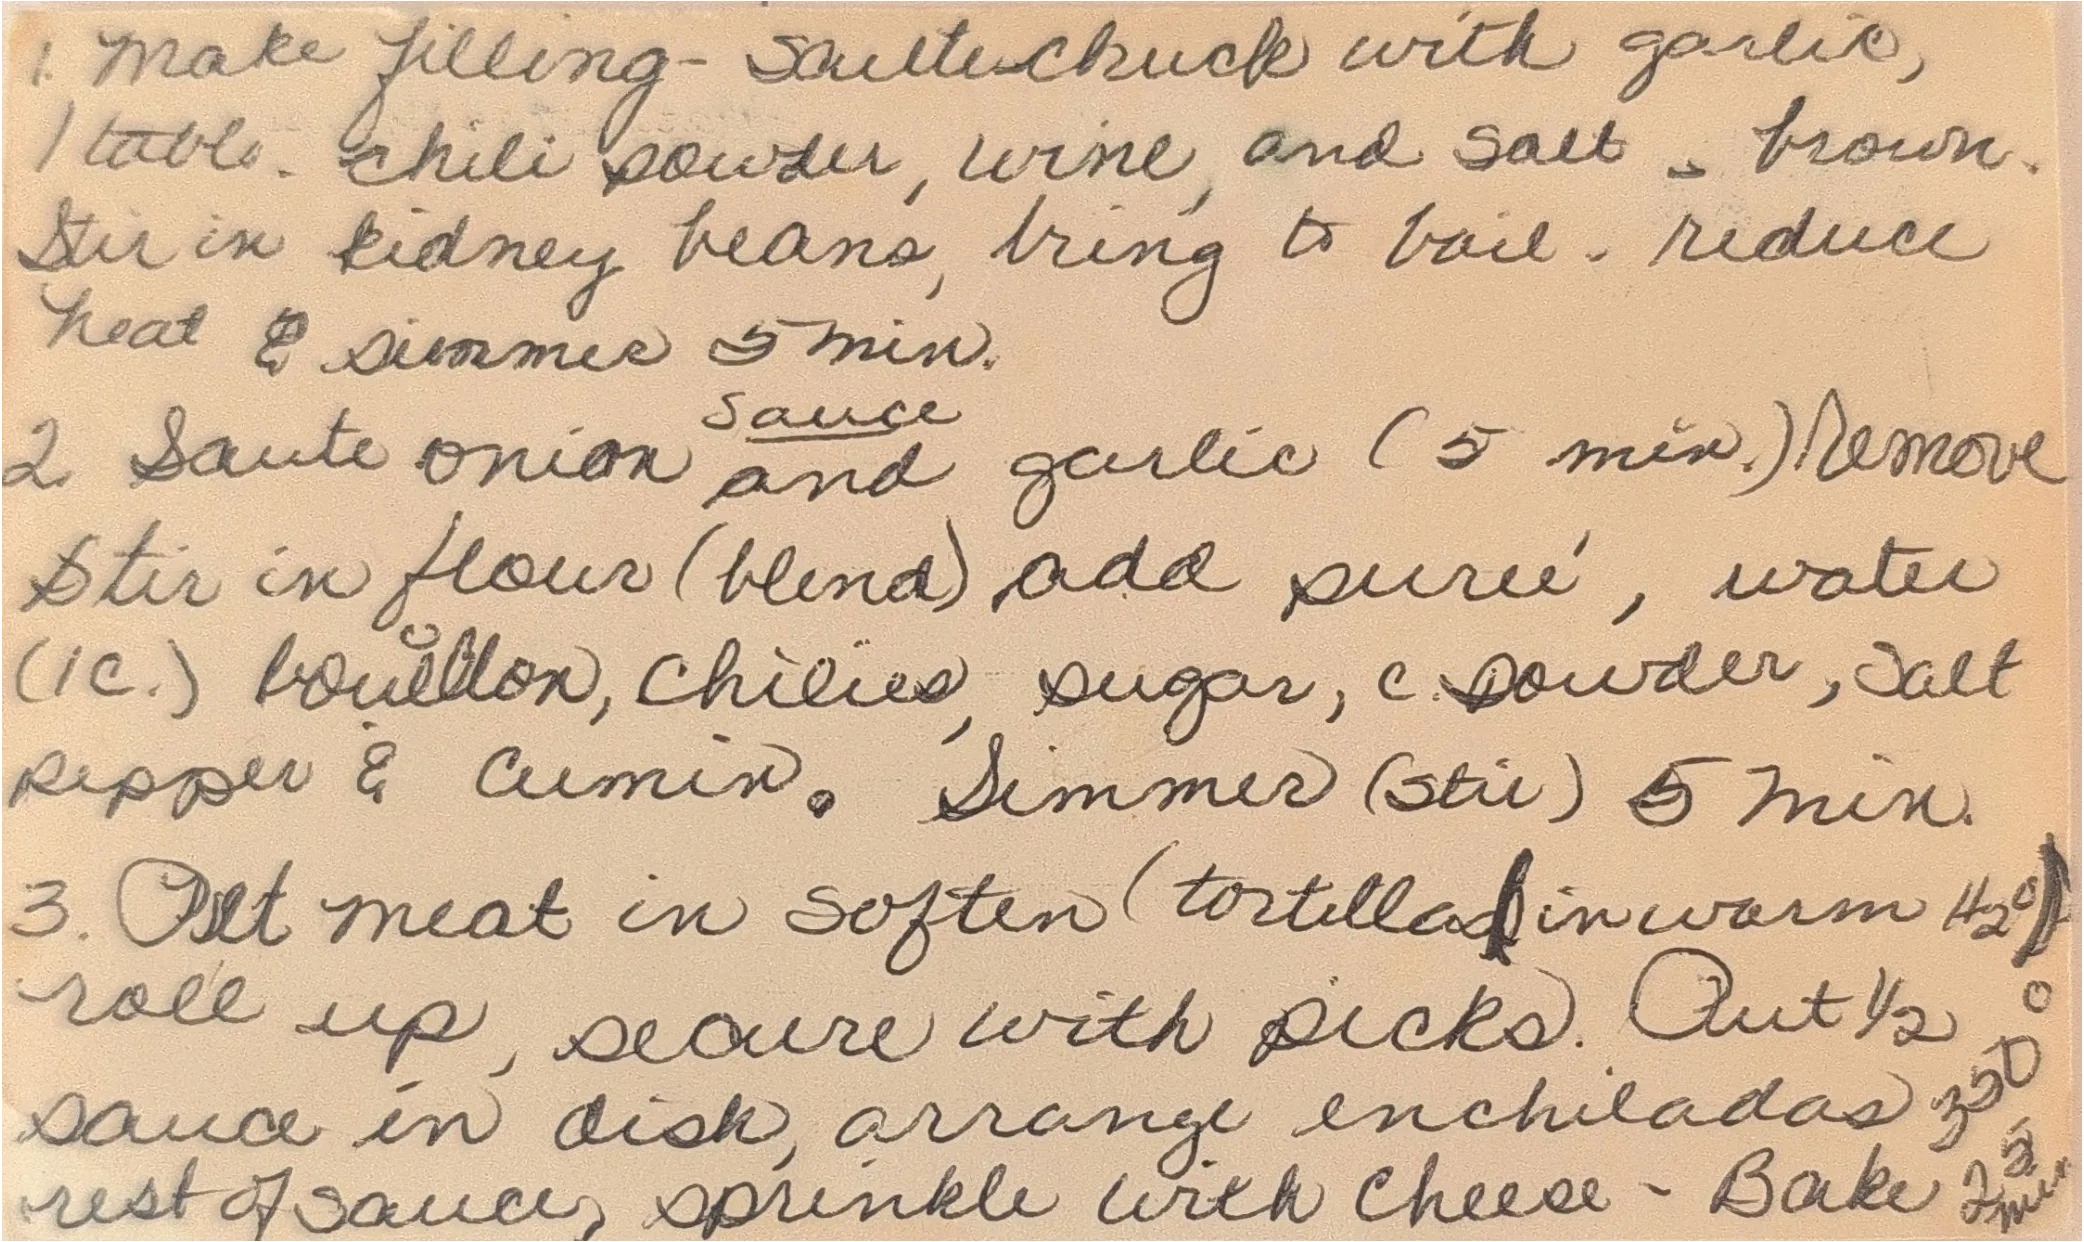 1. Make filling - Saute chuck with garlic,
1 table. chili powder, wine, and salt - brown.
Stir in kidney beans, bring to boil. reduce
heat & simmer 5 min.
Sauce
2. Saute onion and garlic (5 min.) Remove
Stir in flour (blend), add pureé, water
(1 c.) bouillon, chilies, sugar, c. powder, salt
pepper & cumin. Simmer (stir) 5 min.
3. Put meat in soften (tortillas in warm H2O)
roll up, secure with picks. Put 1/2
sauce in dish, arrange enchiladas
rest of sauce, sprinkle with cheese - Bake
350°
25 min